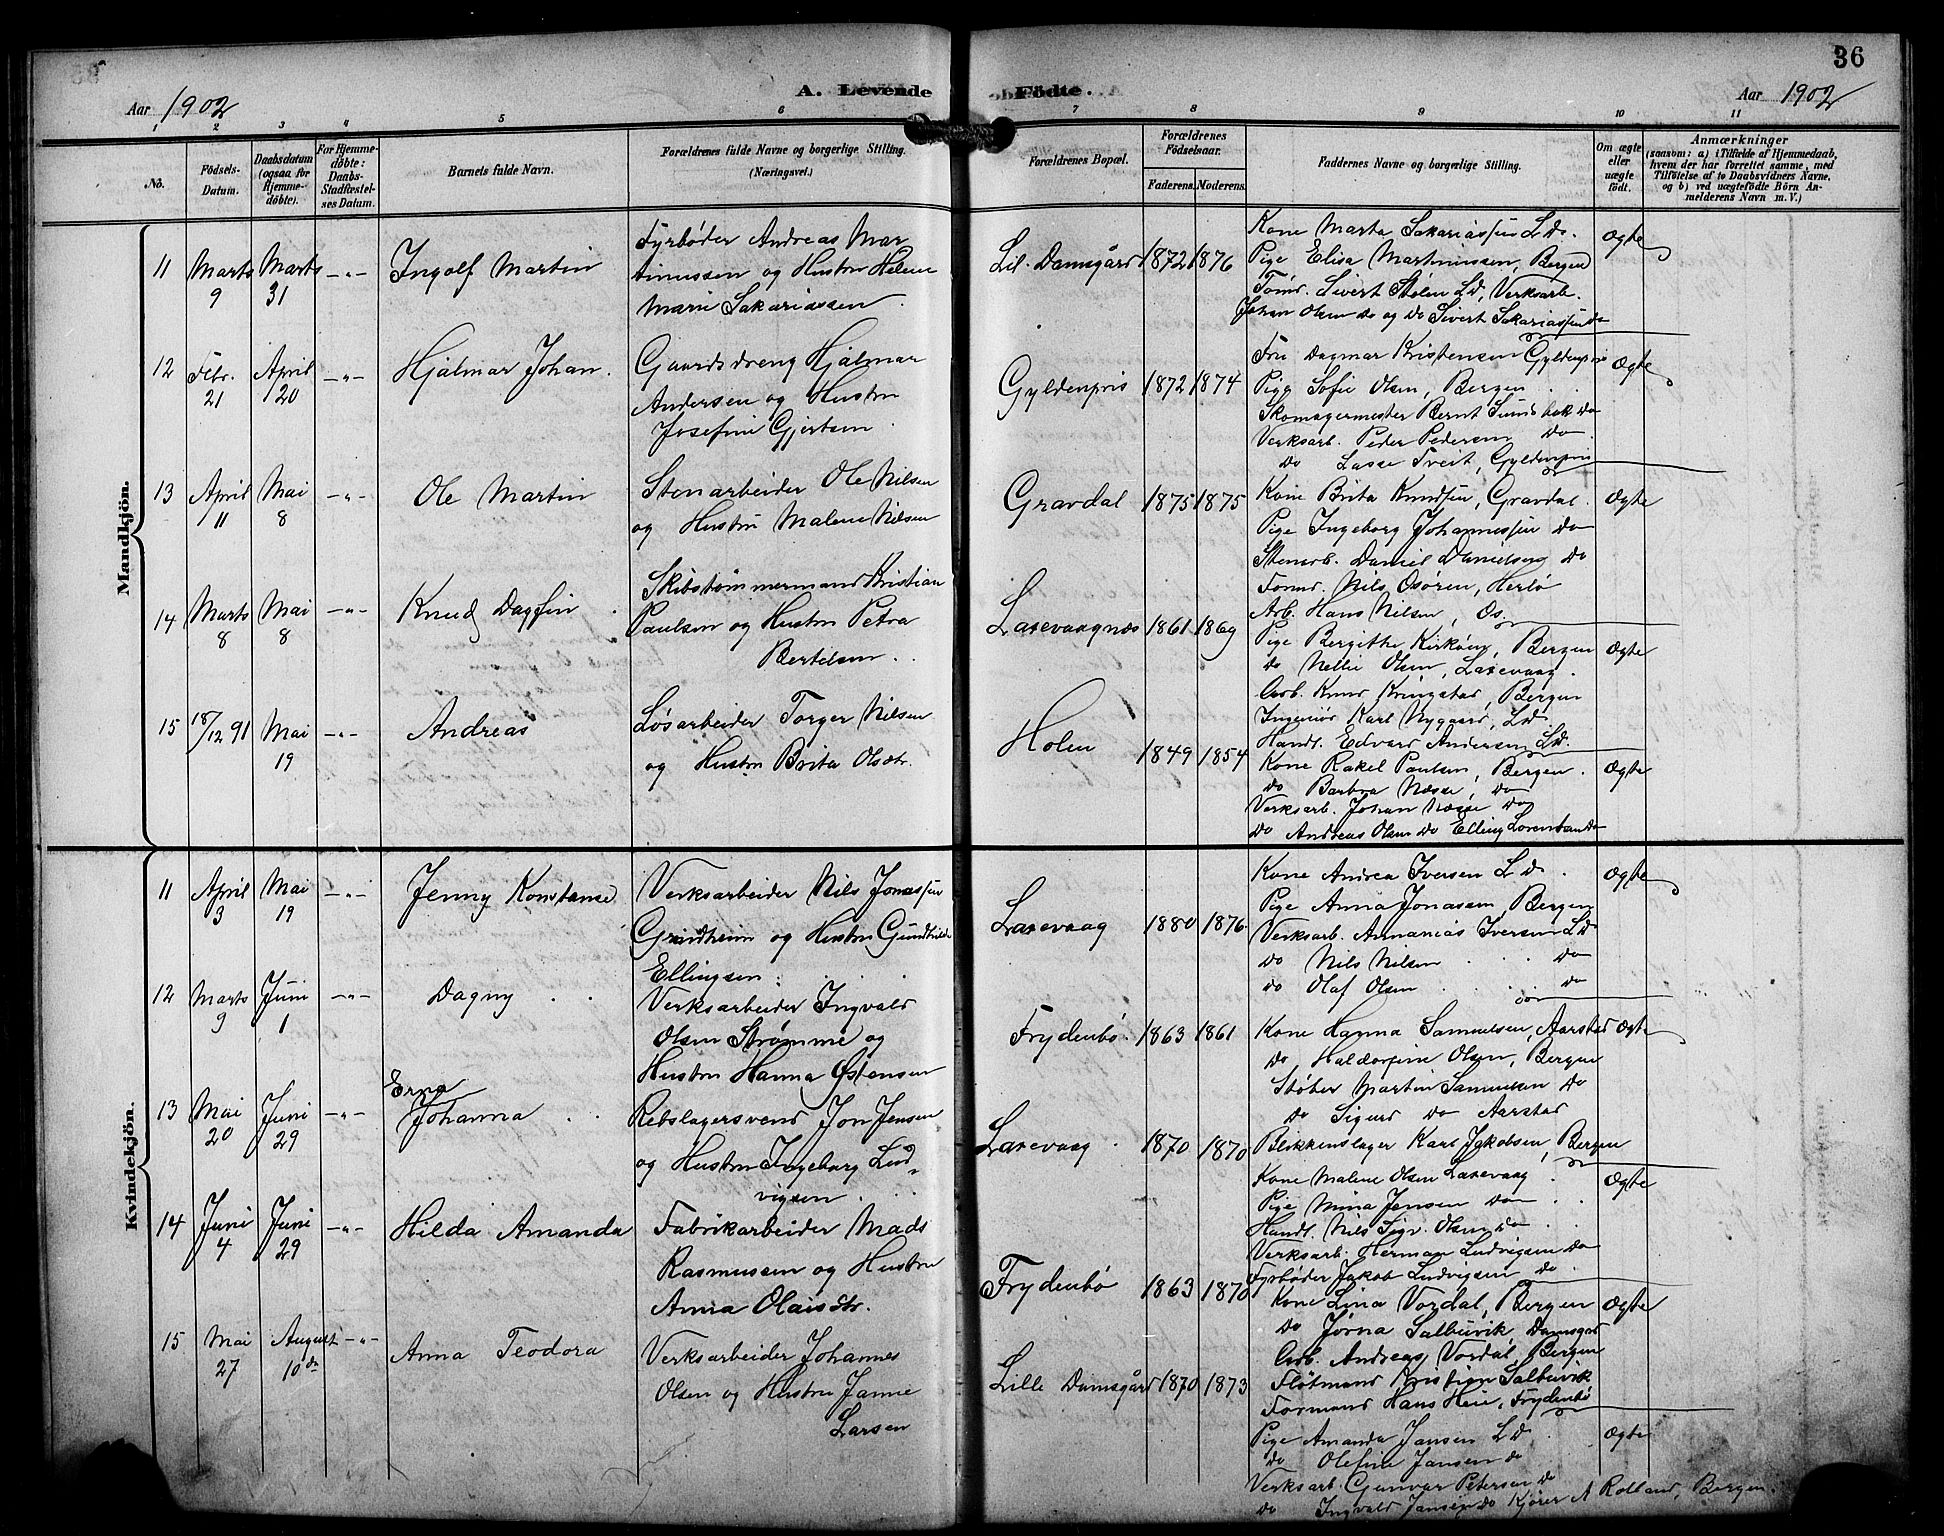 36
A. Levende Födte.
Aar 1902
Aar 1902
1 2 3 4 5 6 7 8 9 10 11
No.
Födsels-Datum.
Daabsdatum (ogsaa for Hjemmedöbte).
For Hjemmedöbte: Daabs-Stadfæstelses Datum.
Barnets fulde Navn.
Forældrenes fulde Navne og borgerlige Stilling. (Næringsvei.)
Forældrenes Bopæl.
Forældrenes Födselsaar.
Faderens. Moderens.
Faddernes Navne og borgerlige Stilling.
Om ægte eller uægte födt.
Anmærkninger
(saasom: a) i Tilfælde af Hjemmedaab,
hvem der har forrettet samme, med
Tilföielse af to Daabsvidners Navne,
og b) ved uægtefödte Börn An-
melderens Navn m. V.)
Mandkjön.
11 Marts 9 Marts 31 -"- Ingolf Martin
Fyrbøder Andreas Mar
tinussen og Hustru Helene
Marie Sakariassen
Lil. Damsgård 1872 1876
Kone Marta Sakariassen Ld.
Pige Elisa Martinussen, Bergen
Tømd. Sivert Stølen Ld, Verksarb.
Johan Olsen do og do Sivert Sakariassen do
Ægte
12 Febr. 21 April 20 -"- Hjalmar Johan.
Gaardsdreng Hjalmar
Andersen og Hustru
Josefine Gjertsen
Gyldenpris 1872 1874
Fru Dagmar Kristensen Gyldenpris
Pige Sofie Olsen, Bergen
Skomagermester Bernt Sundsbak do
Verksarb. Peder Pedersen do
do Lasse Treit, Gyldenpris
Ægte
13 April 11 Mai 8 -"- Ole Martin
Stenarbeider Ole Nilsen
og Hustru Malene Nilsen
Gravdal 1875 1875
Kone Brita Knudsen, Gravdal.
Pige Ingeborg Johannessen do
Stenarb. Daniel Danielsen do
Formd. Nils Osøren, Herlø
Arb. Hans Nilsen, Os.
Ægte
14 Marts 8 Mai 8 -"- Knud Dagfin
Skibstømmermand Kristian
Paulsen og Hustru Petra
Bertelsen.
Laxevaagnæs 1861 1869
Pige Bergithe Kirkøen, Bergen
do Nellie Olsen, Laxevaag.
Arb. Knud Kringstad, Bergen
Ingeniør Karl Nygaard, Ld.
Handl. Edvard Andersen Ld.
Ægte
15 18/12 91 Mai 19 -"- Andreas
Løsarbeider Torger Nilsen
og Hustru Brita Olsdtr.
Holen 1849 1854
Kone Rakel Paulsen, Bergen.
do Barbra Næsse, do
Verksarb. Johan Næsse do
do Andreas Olsen do Elling Lorentsen do
Ægte
Kvindekjön.
11 April 3 Mai 19 -"- Jenny Konstanse
Verksarbeider Nils Jonassen
Grindheim og Hustru Gundhilde
Ellingsen.
Laxevaag 1880 1876
Kone Andrea Iversen Ld.
Pige Anna Jonassen, Bergen
Verksarb. Annanias Iversen Ld
do Nils Nilsen do
do Olaf Olsen do
Ægte
12 Marts 9 Juni 1 -"- Dagny
Verksarbeider Ingvald
Olsen Strømme og
Hustru Hanna Østensen
Frydenbø. 1863 1861
Kone Hanna Samuelsen, Aarstad
do Haldorfine Olsen, Bergen
Støber Martin Samuelsen do
do Sigurd do Aarstad
Blikkenslager Karl Jakobsen, Bergen
Ægte
13 Mai 20 Juni 29 -"- Erna Johanna
Rebslagersvend Jon Jensen
og Hustru Ingeborg Lud
vigsen
Laxevaag 1870 1870
Kone Malene Olsen Laxevaag
Pige Mina Jensen do
Handl. Nils Sigv. Olsen do
Verksarb. Herman Ludvigsen do
Fyrbøder Jakob Ludvigsen do
Ægte
14 Juni 4 Juni 29 -"- Hilda Amanda
Fabrikarbeider Mads
Rasmussen og Hustru
Anna Olaisdtr.
Frydenbø 1863 1870
Kone Lina Vordal, Bergen
do Jørna Salbuvik, Damsgrd
Arb. Andreas Vordal, Bergen
Fløtmand Kristian Salbuvik
Formand Hans Heie, Frydenbø
Ægte
15 Mai 27 August 10de -"- Anna Teodora
Verksarbeider Johannes
Olsen og Hustru Janne
Larsen
Lille Damsgård 1870 1873
Pige Amanda Jansen Ld.
do Olefine Jansen do
Verksarb. Gunvar Petersen do
do Ingvald Jansen do Kjører A Rolland, Bergen.
Ægte